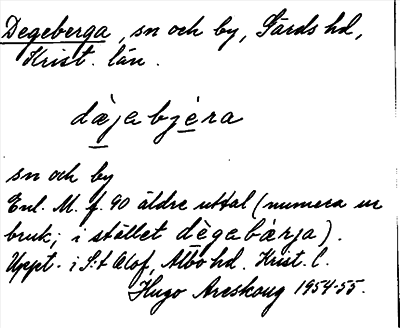 Degeberga, sn och by, Gärds hd,
Krist. län.
dæ̀jabjéra
sn och by
Enl. M. f. 90 äldre uttal (numera ur
bruk; i stället dègebàrja).
Uppt. i S:t Olof, Albo hd. Krist. l.
Hugo Areskoug 1954-55.